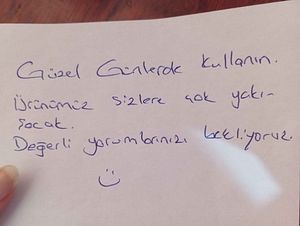 Güzel Günlerde kullanın.
Ürünümüz sizlere çok yakı-
şacak.
Değerli yorumlarınızı bekliyoruz.